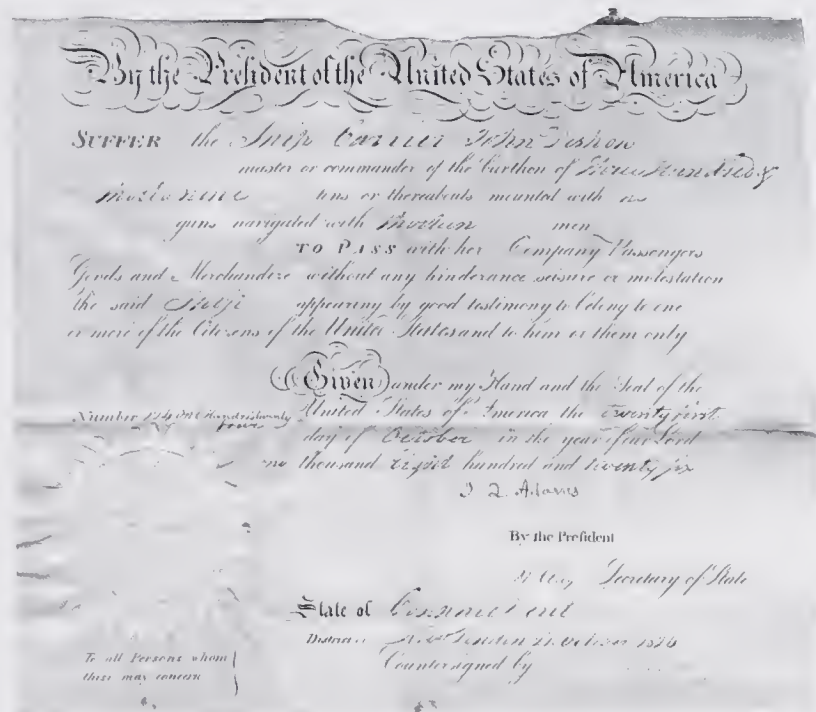 By the President of the United States of America
SUFFER the Ship Carrier John Deshon
master or commander of the burthen of Hundred &
nine tons or thereabouts mounted with no
guns navigated with men
TO PASS with her Company Passengers
Goods and Merchandize without any hinderance seisure or molestation
the said Ship appearing by good testimony to belong to one
or more of the Citizens of the United States and to him or them only
Given under my Hand and the Seal of the
Number 124 One Hundred twenty four
United States of America the twenty first
day of October in the year of our Lord
one thousand eight hundred and twenty six
J Q. Adams
By the President
H Clay Secretary of State
State of Connecticut
District New London 1826
Countersigned by
To all Persons whom
these may concern